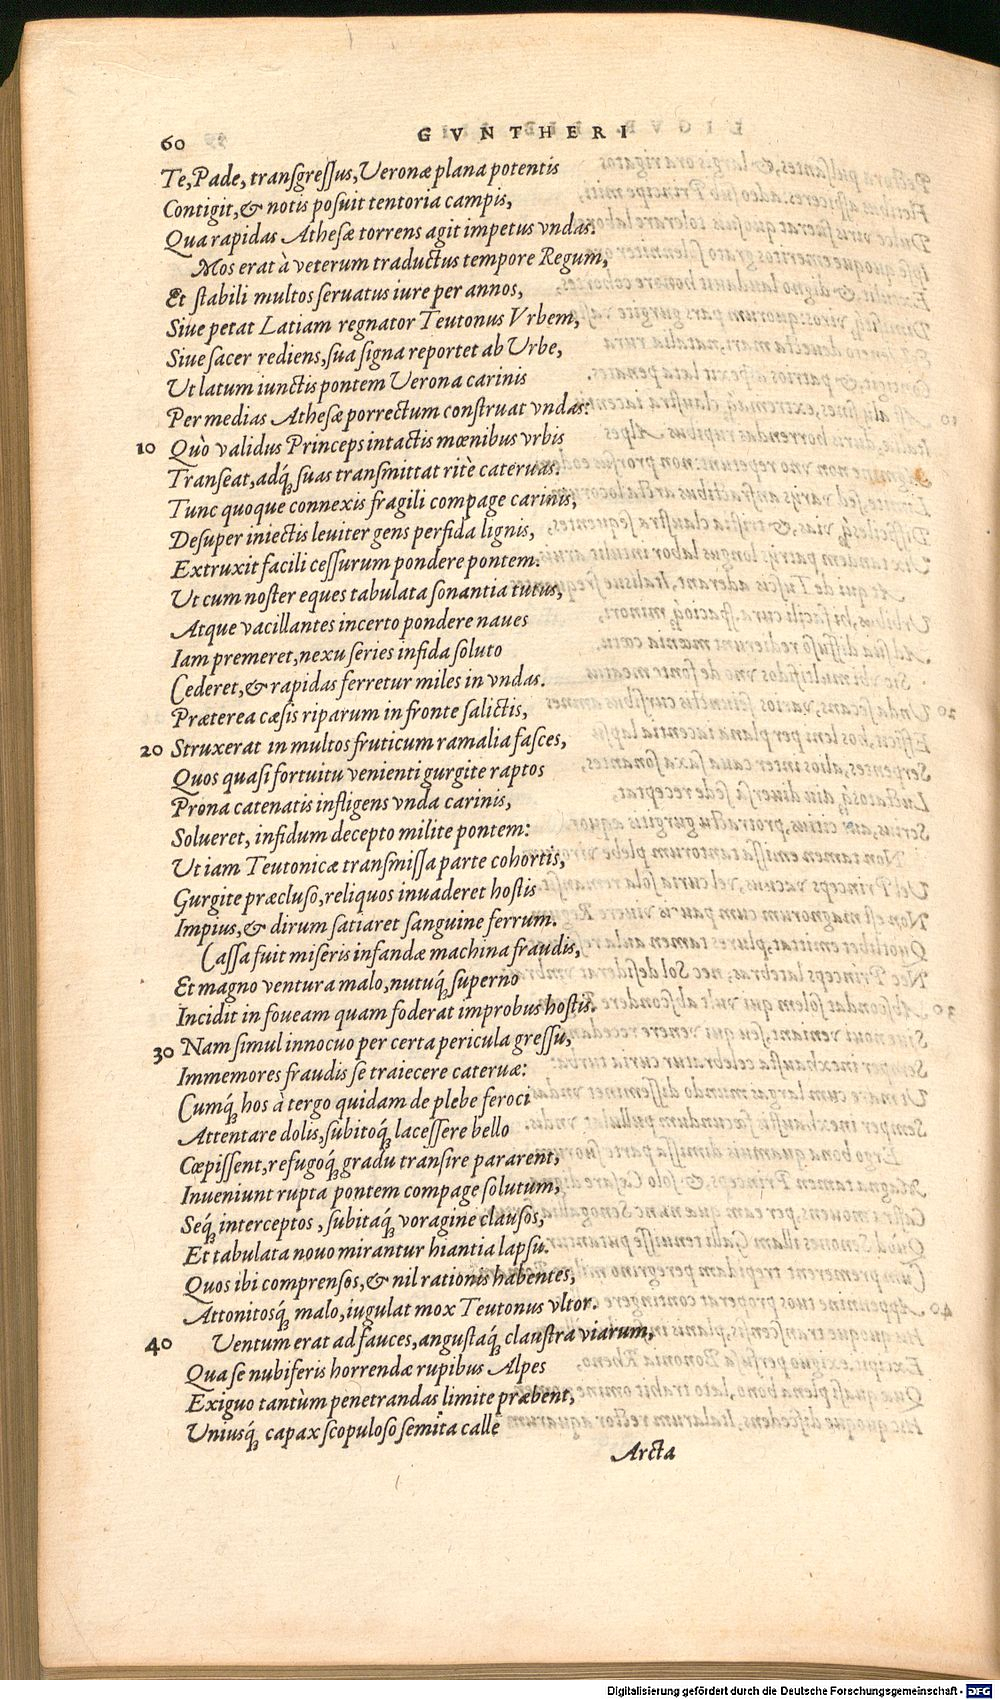 60 GVNTHERI
Te, Pade, transgressus, Veronæ plana potentis
Contigit, & notis posuit tentoria campis,
Qua rapidas Athesæ torrens agit impetus vndas.
Mos erat à veterum traductus tempore Regum,
Et stabili multos seruatus iure per annos,
Siue petat Latiam regnator Teutonus Vrbem,
Siue sacer rediens, sua signa reportet ab Urbe,
Ut latum iunctis pontem Verona carinis
Per medias Athesæ porrectum construat vndas:
10 Quò validus Princeps intactis mœnibus vrbis
Transeat, adq́; suas transmittat ritè cateruas.
Tunc quoque connexis fragili compage carinis,
Desuper iniectis leuiter gens perfida lignis,
Extruxit facili cessurum pondere pontem.
Ut cum noster eques tabulata sonantia tutus,
Atque vacillantes incerto pondere naues
Iam premeret, nexu series infida soluto
Cederet, & rapidas ferretur miles in vndas.
Præterea cæsis riparum in fronte salictis,
20 Struxerat in multos fruticum ramalia fasces,
Quos quasi fortuitu venienti gurgite raptos
Prona catenatis infligens vnda carinis,
Solueret, infidum decepto milite pontem:
Ut iam Teutonicæ transmissa parte cohortis,
Gurgite præcluso, reliquos inuaderet hostis
Impius, & dirum satiaret sanguine ferrum.
Cassa fuit miseris infandæ machina fraudis,
Et magno ventura malo, nutuq́; superno
Incidit in foueam quam foderat improbus hostis.
30 Nam simul innocuo per certa pericula gressu,
Immemores fraudis se traiecere cateruæ:
Cumq́; hos à tergo quidam de plebe feroci
Attentare dolis, subitoq́; lacessere bello
Cœpissent, refugoq́; gradu transire pararent,
Inueniunt rupta pontem compage solutum,
Seq́; interceptos, subitaq́; voragine clausos,
Et tabulata nouo mirantur hiantia lapsu.
Quos ibi comprensos, & nil rationis habentes,
Attonitosq́; malo, iugulat mox Teutonus vltor.
40 Ventum erat ad fauces, angustaq́; claustra viarum,
Qua se nubiferis horrendæ rupibus Alpes
Exiguo tantùm penetrandas limite præbent,
Uniusq́; capax scopuloso semita calle
Arcta
Digitalisierung gefördert durch die Deutsche Forschungsgemeinschaft - DFG